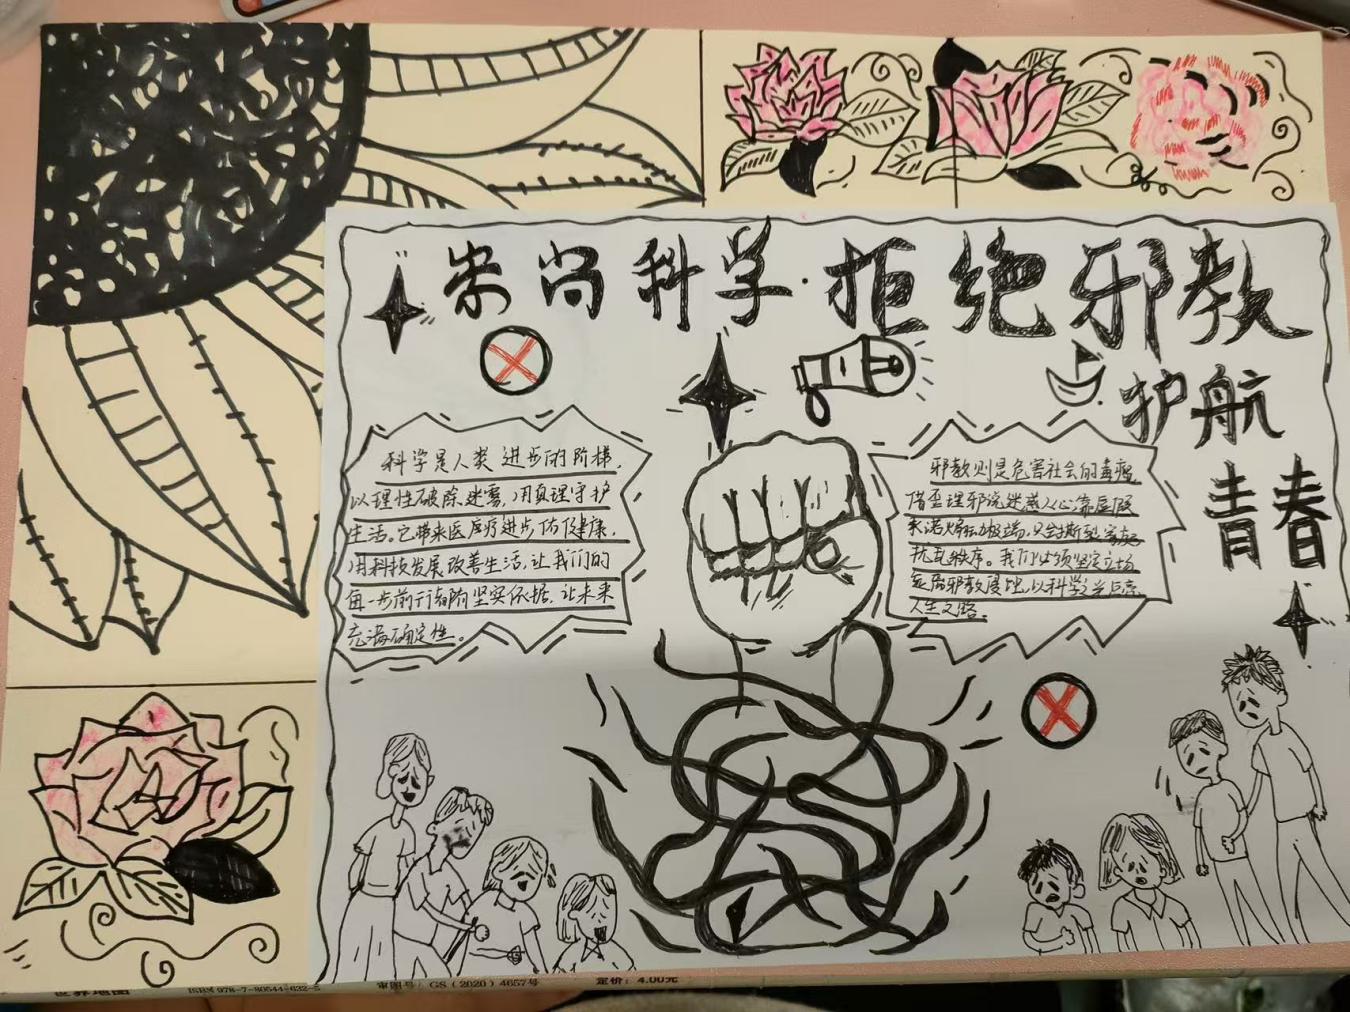 崇尚科学·拒绝邪教
护航
青春
科学是人类进步的阶梯,
以理性破除迷雾,用真理守护
生活。它带来医疗进步伤健康,
用科技发展改善生活,让我们的
每一步前行都有坚实依据,让未来
充满确定性。
邪教则是危害社会的毒瘤
借歪理邪说迷惑人心,靠虚假
承诺煽动极端,只会撕裂家庭
扰乱秩序。我们必须坚定立场
远离邪教,以科学之光点亮
人生之路。
世界地图
ISBN 978-7-80544-632-5
审图号:GS(2020)4657号
定价:4.00元